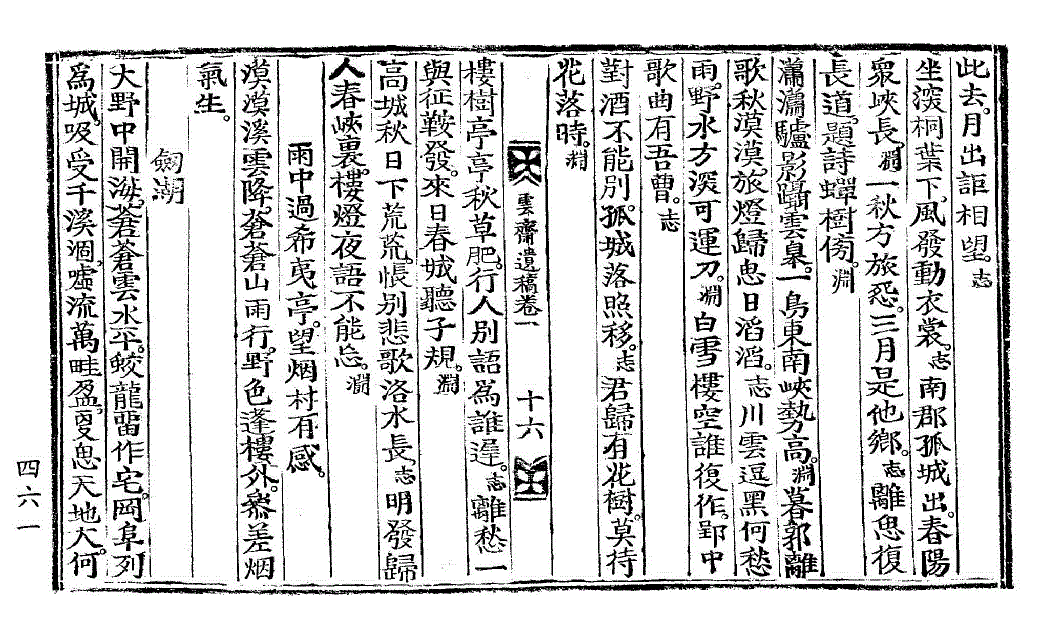 此去。月出詎相望。志
坐深桐葉下。風發動衣裳。志 南郡孤城出。春陽
衆峽長。淵 一秋方旅恐。三月是他鄕。志 離思復
長道。題詩蟬樹傍。淵
瀟瀟驢影躡雲臯。一島東南峽勢高。淵 暮郭離
歌秋漠漠。旅燈歸思日滔滔。志 川雲逗黑何愁
雨。野水方深可運刀。淵 白雪樓空誰復作。郢中
歌曲有吾曹。志
對酒不能別。孤城落照移。志 君歸有花樹。莫待
花落時。淵
雲齋遺稿卷一 十六
樓樹亭亭秋草肥。行人別語爲誰遲。志 離愁一
與征鞍發。來日春城聽子規。淵
高城秋日下荒荒。悵別悲歌洛水長。志 明發歸
人春峽裏。樓燈夜語不能忘。淵
雨中過希夷亭。望烟村有感。
漠漠溪雲降。蒼蒼山雨行。野色蓬樓外。參差烟
氣生。
劒湖
大野中開海。蒼蒼雲水平。蛟龍留作宅。岡阜列
爲城。吸受千溪涸。噓流萬畦盈。夐思天地大。何
四六一